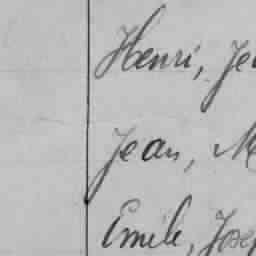 Henri, Je
Jean, M
Emile, Jose